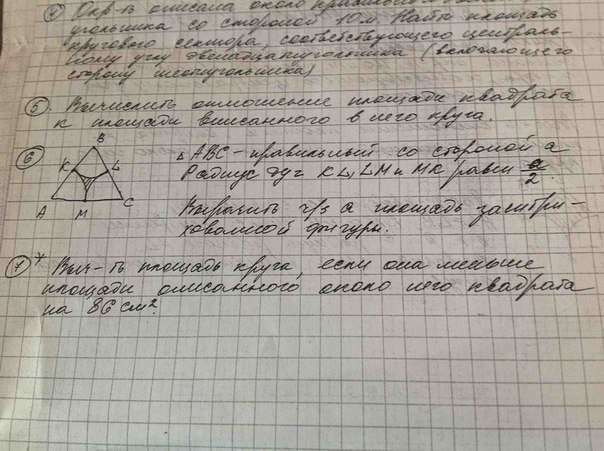 ④ Окр-ть описана около правильного
угольника со стороной 10 м. Найти площадь
кругового сектора, соответствующего централь-
ному углу (включающего
сторону шестиугольника)
⑤ Вычислить отношение площади квадрата
к площади вписанного в него круга.
⑥ △ABC - правильный со стороной a
B
K L
A M C
Радиус дуг KL, LM и MK равны a/2.
Выразить ч/з a площадь заштри-
хованной фигуры.
⑦* Выч-ть площадь круга, если она меньше
площади описанного около него квадрата
на 86 см².